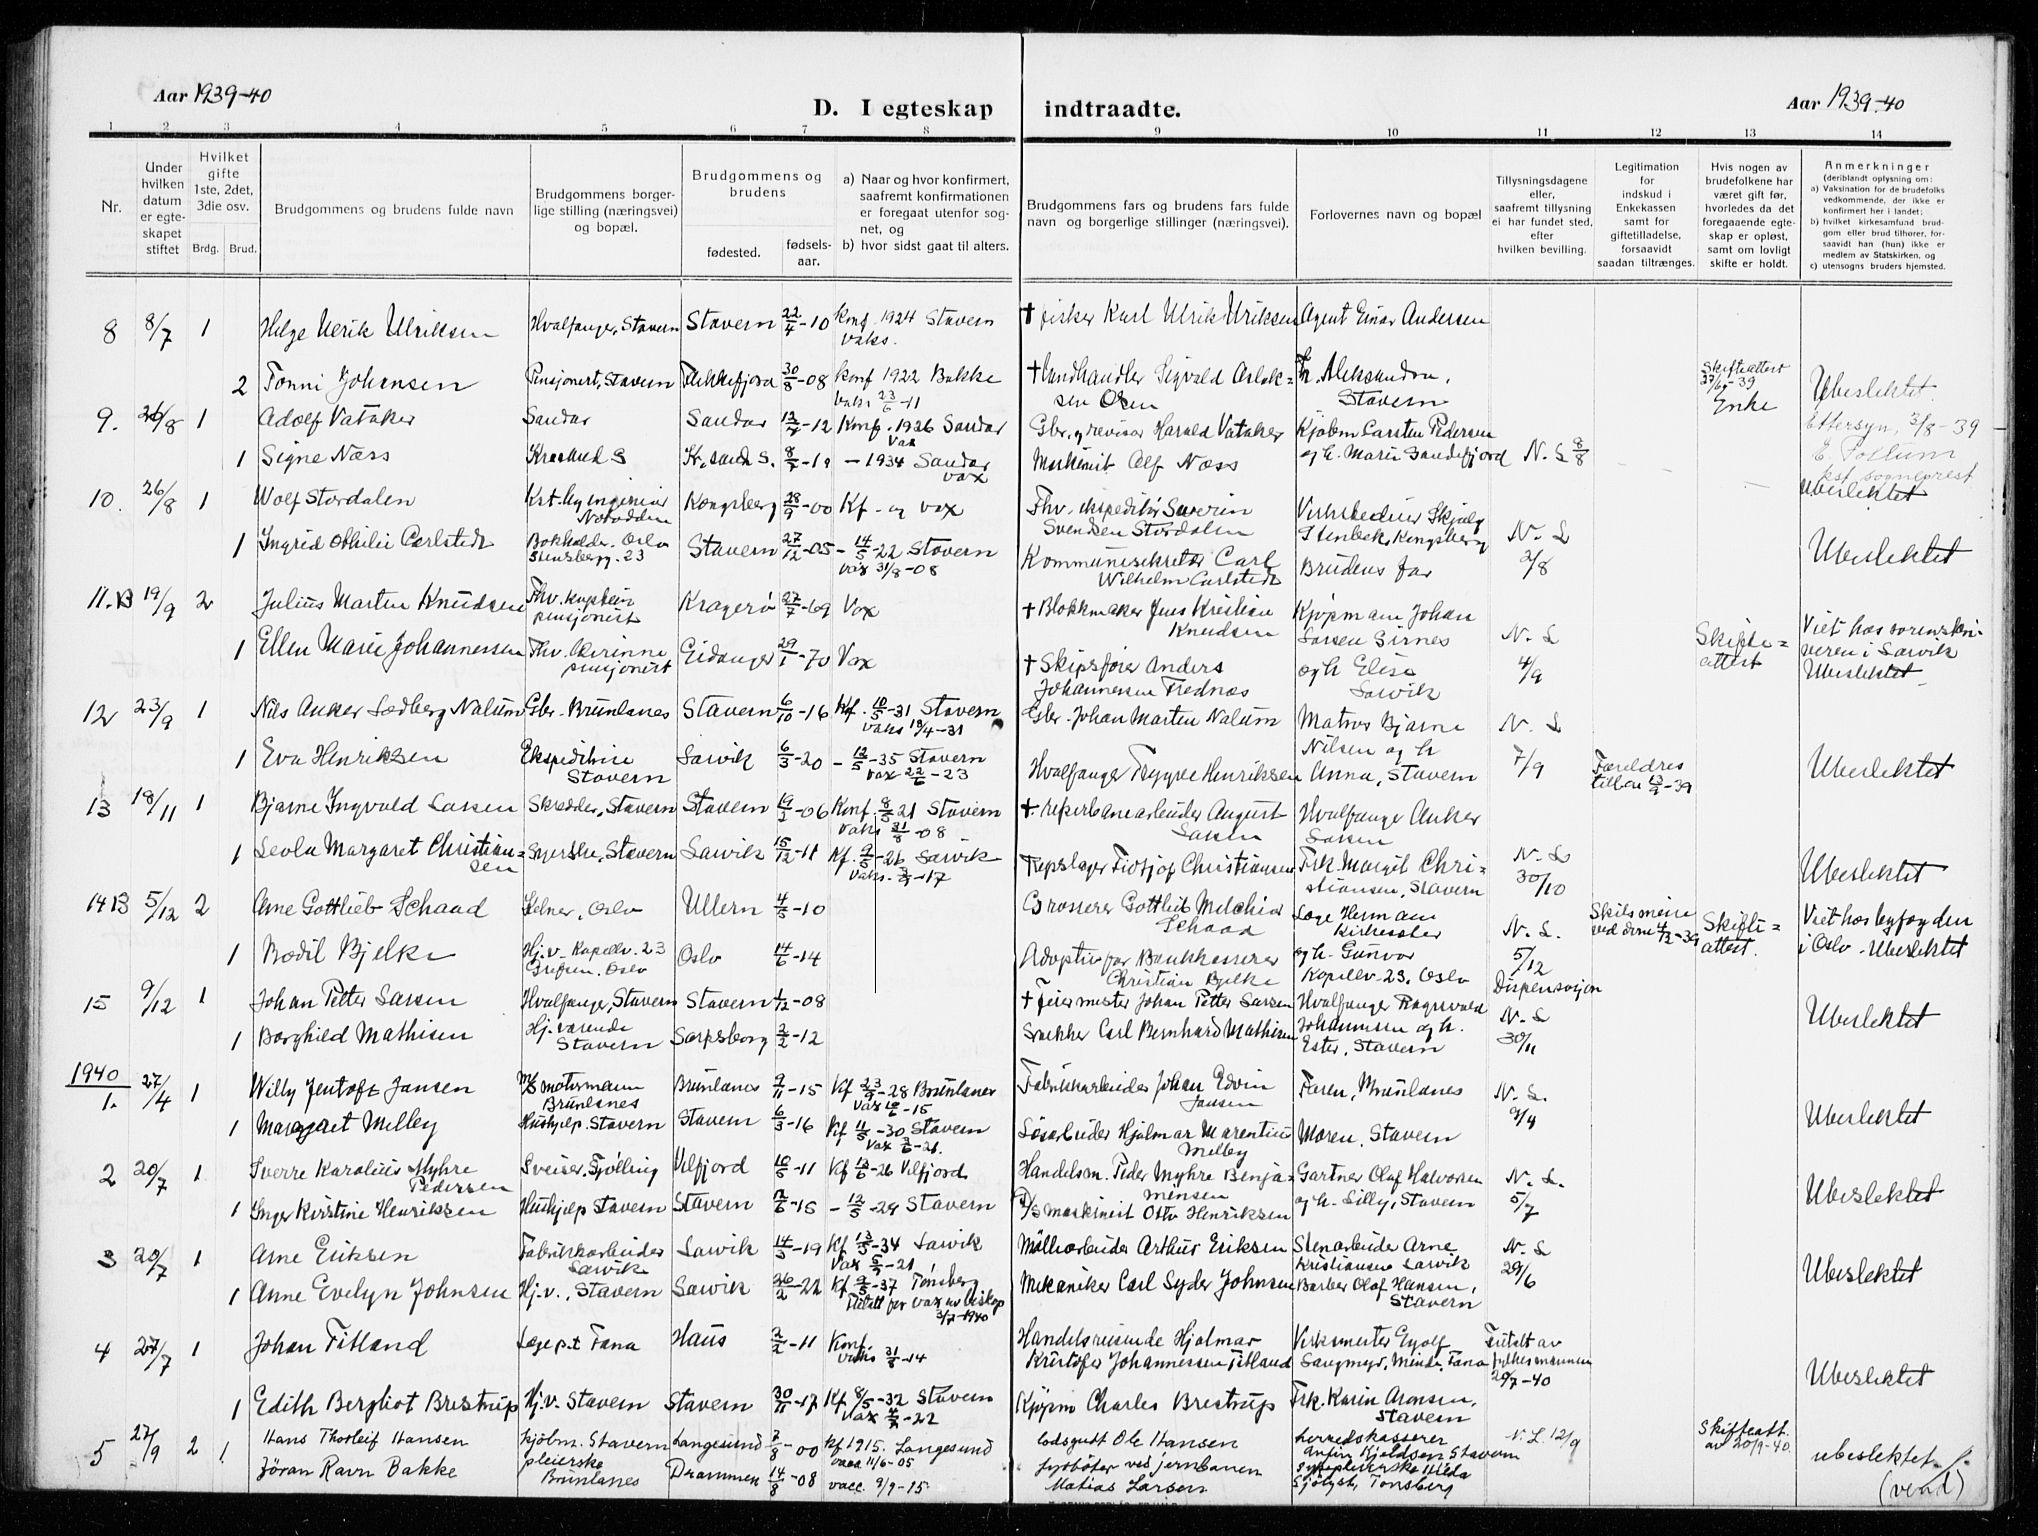 Aar 1939-40
D. I egteskap indtraadte.
Aar 1939-40
1 2 3 4 5 6 7 8 9 10 11 12 13 14
Nr.
Under hvilken datum er egteskapet stiftet
Hvilket gifte 1ste, 2det, 3die osv.
Brdg. Brud.
Brudgommens og brudens fulde navn
Brudgommens borgerlige stilling (næringsvei) og bopæl.
Brudgommens og brudens
fødested. fødselsaar.
a) Naar og hvor konfirmert, saafremt konfirmationen er foregaat utenfor sognet, og
b) hvor sidst gaat til alters.
Brudgommens fars og brudens fars fulde navn og borgerlige stillinger (næringsvei).
Forlovernes navn og bopæl
Tillysningsdagene eller, saafremt tillysning ei har fundet sted, efter hvilken bevilling.
Legitimation for indskud i Enkekassen samt for giftetilladelse, forsaavidt saadan tiltrænges.
Hvis nogen av brudefolkene har været gift før, hvorledes da det foregaaende egteskap er opløst, samt om lovligt skifte er holdt.
Anmerkninger (deriblandt oplysning om:
a) Vaksination for de brudefolks vedkommende, der ikke er konfirmert her i landet;
b) hvilket kirkesamfund brudgom eller brud tilhører, forsaavidt han (hun) ikke er medlem av Statskirken, og
c) utensogns bruders hjemsted.
8 8/7 1 Helge Ulrik Ulriksen Hvalfanger, Stavern Stavern 22/4-10 konf. 1924 Stavern vaks. † fisker Karl Ulrik Ulriksen Agent Einar Andersen
2 Tonni Johansen Pensjonert, Stavern Flekkefjord 30/8-08 konf 1922 Bakke vaks 23/6-11 † Landhandler Sigvald Aslaksen Olsen Fr. Aleksandra, Stavern Skifteattest 27/6-39 Enke Ubeslektet
9. 26/8 1 Adolf Vataker Sandar Sandar 12/7-12 Konf. 1926 Sandar Vax Gbr. og revisor Harald Vataker Kjøbm Carsten Pedersen Ettersyn, 3/8-39
1 Signe Næss Kr.sand S Kr.sand S. 8/7-19 - 1934 Sandar vax Maskinist Alf Næss og h. Marie Sandefjord N. L 8/8 E. Follum kst. sogneprest Ubeslektet
10. 26/8 1 Wolf Stordalen Kst. byingeniør Notodden Kongsberg 28/9-00 Kf. og vax Fhv. ekspeditør Severin Svendsen Stordalen Virkeleder Skjalg Stenbek, Kongsberg N. L
1 Ingrid Othilie Carlstedt Bokholder. Oslo Stensberg. 23 Stavern 27/12-05 - 14/5-22 Stavern vax 31/8-08 Kommunesekretær Carl Wilhelm Carlstedt Brudens far 2/8 Ubeslektet
11. B 19/9 2 Julius Martin Knudsen Fhv. kaptein pensjonert Kragerø 27/7-69 Vax † Blokkmaker Jens Kristian Knudsen Kjøpmann Johan Larsen Girnes N. L Skifteattest Viet hos sorenskriveren i Larvik
1 Ellen Marie Johannessen Fhv. pensjonert Eidanger 29/1-70 Vax † Skipsfører Anders Johannessen Frednæs og h Elise Larvik 4/9 Ubeslektet
12 23/9 1 Nils Anker Sedberg Nalum Gbr. Brunlanes Stavern 6/10-16 Kf. 10/5-31 Stavern vaks 18/4-31 Gbr. Johan Martin Nalum Matros Bjarne Nilsen og h N. L
1 Eva Henriksen Ekspeditrise Stavern Larvik 6/3-20 - 12/5-35 Stavern vax 22/6-23 Hvalfanger Trygve Henriksen Anna, Stavern 7/9 Foreldres 13/9-39 Ubeslektet
13 18/11 1 Bjarne Ingvald Larsen Skredder, Stavern Stavern 19/2-06 Konf. 8/5 21 Stavern Vaks 31/8-08 † reperbanearbeider August Larsen Hvalfanger Anker Larsen N. L
1 Leola Margaret Christiansen Syerske, Stavern Larvik 15/12-11 Kf. 9/5-26 Larvik Vaks. -17 Repslager Fidtjof Christiansen Frk. Margit Christiansen, Stavern 30/10 Ubeslektet
14 B 5/12 2 Arne Gottlieb Schaad Kelner, Oslo Ullern 4/5-10 Grosserer Gottlieb Melchior Schaad Lage Hermann N. L. Skilsmisse Skifteattest. Viet hos byfogden
1 Bodil Bjelke Hj.v. Kapellv. 23 Grefsen. Oslo Oslo 14/6-14 Adoptivfar Bankkasserer Christian Bjelke og h. Gunvor Kapellv. 23. Oslo 5/12 Dispensasjon i Oslo. Ubeslektet
15 9/12 1 Johan Petter Larsen Hvalfanger, Stavern Stavern 1/12-08 † Feiermester Johan Petter Larsen Hvalfanger Ragnvald Johannesen og h. N. L
1 Borghild Mathisen Hj. værende Stavern Sarpsborg 2/2-12 Snekker Carl Bernhard Mathisen Ester, Stavern 30/11 Ubeslektet
1940
1. 27/4 1 Willy Jentoft Jansen M/S motormann Brunlanes Brunlanes 9/11-15 Kf 23/9-28 Brunlanes Vax 10/6-15 Fabrikkarbeider Johan Edvin Jansen Faren, Brunlanes N. L.
1 Margaret Melby Hushjelp. Stavern Stavern 6/3-16 Kf 11/5-30 Stavern Vax 3/6-21. Løsarbeider Hjalmar Marentius Melby Moren, Stavern 9/4 Ubeslektet
2 20/7 1 Sverre Karolius Myhre Pedersen Sveiser. Tjølling Velfjord 10/5-11 Kf 13/6-26 Velfjord Handelsm. Peder Myhre Benjaminsen Gartner Olaf Halvorsen N. L.
1 Inger Kirstine Henriksen Hushjelp Stavern Stavern 7/6-15 - 12/5-29 Stavern D/S maskinist Osv Henriksen og h. Lilly, Stavern 5/7 Ubeslektet
3 20/7 1 Arne Eriksen Fabrikkarbeider Larvik Larvik 14/3-19 Kf 13/5-34 Larvik Vax 5/7-21 Møllearbeider Arthur Eriksen Stenarbeider Arne Kristiansen Larvik N. L
1 Anne Evelyn Johnsen Hj.v., Stavern Larvik 26/2-22 Kf 2/5-37 Tønsberg Fritatt for vax av biskop 3/7-1940 Mekaniker Carl Syder Johnsen Barber Olaf Hansen, Stavern 29/6 Ubeslektet
4 27/7 1 Johan Titland Lege p.t Fana Haus 2/2-11 Konf. Vaks 31/8-14 Handelsreisende Hjalmar Kristofer Johannessen Titland Virksmester Eyolf Sangmyr, Minde, Fana Fritatt av fylkesmannen 20/7-40
1 Edith Bergliot Brestrup Hj.v. Stavern Stavern 30/11-17 Kf 8/5-32 Stavern Vax 4/7-22 Kjøpm Charles Brestrup Frk. Karin Aronsen, Stavern Ubeslektet
5 27/9 2 1. Hans Thorleif Hansen kjøbm. Stavern Langesund 7/8-00 kf 1915. Langesund vacc 11/6-05 lodsgutt Ole Hansen herredskasserer Anfin Kjeldsen Stavern N. L. 12/9 Skifteatt. av 20/9-40.
Jøran Ravn Bakke pleierske Brunlanes Drammen 14/8-08 vacc. 9/9-15 fyrbøter ved jernbanen Matias Larsen sykepleierske Hilda Sjølyst, Tønsberg ubeslektet
(vend)